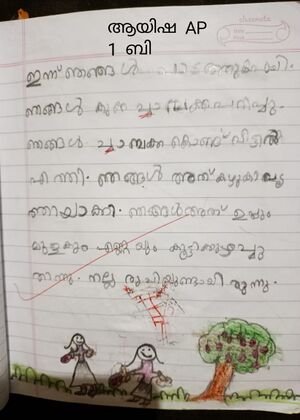 ആയിഷ AP
1 ബി
classmate
Date
Page
ഇന്ന് ഞങ്ങൾ പാടത്തുപോയി.
ഞങ്ങൾ കുറേ ചാമ്പക്ക പെറുക്കി.
ഞങ്ങൾ ചാമ്പക്ക കൊണ്ട് വീട്ടിൽ
എത്തി. ഞങ്ങൾ അത് കഴുകി വൃ
ത്തിയാക്കി. ഞങ്ങൾ അത് ഉപ്പും
മുളകും എണ്ണയും കൂട്ടിക്കുഴച്ചു
തിന്നു. നല്ല രുചിയുണ്ടായി രുന്നു.